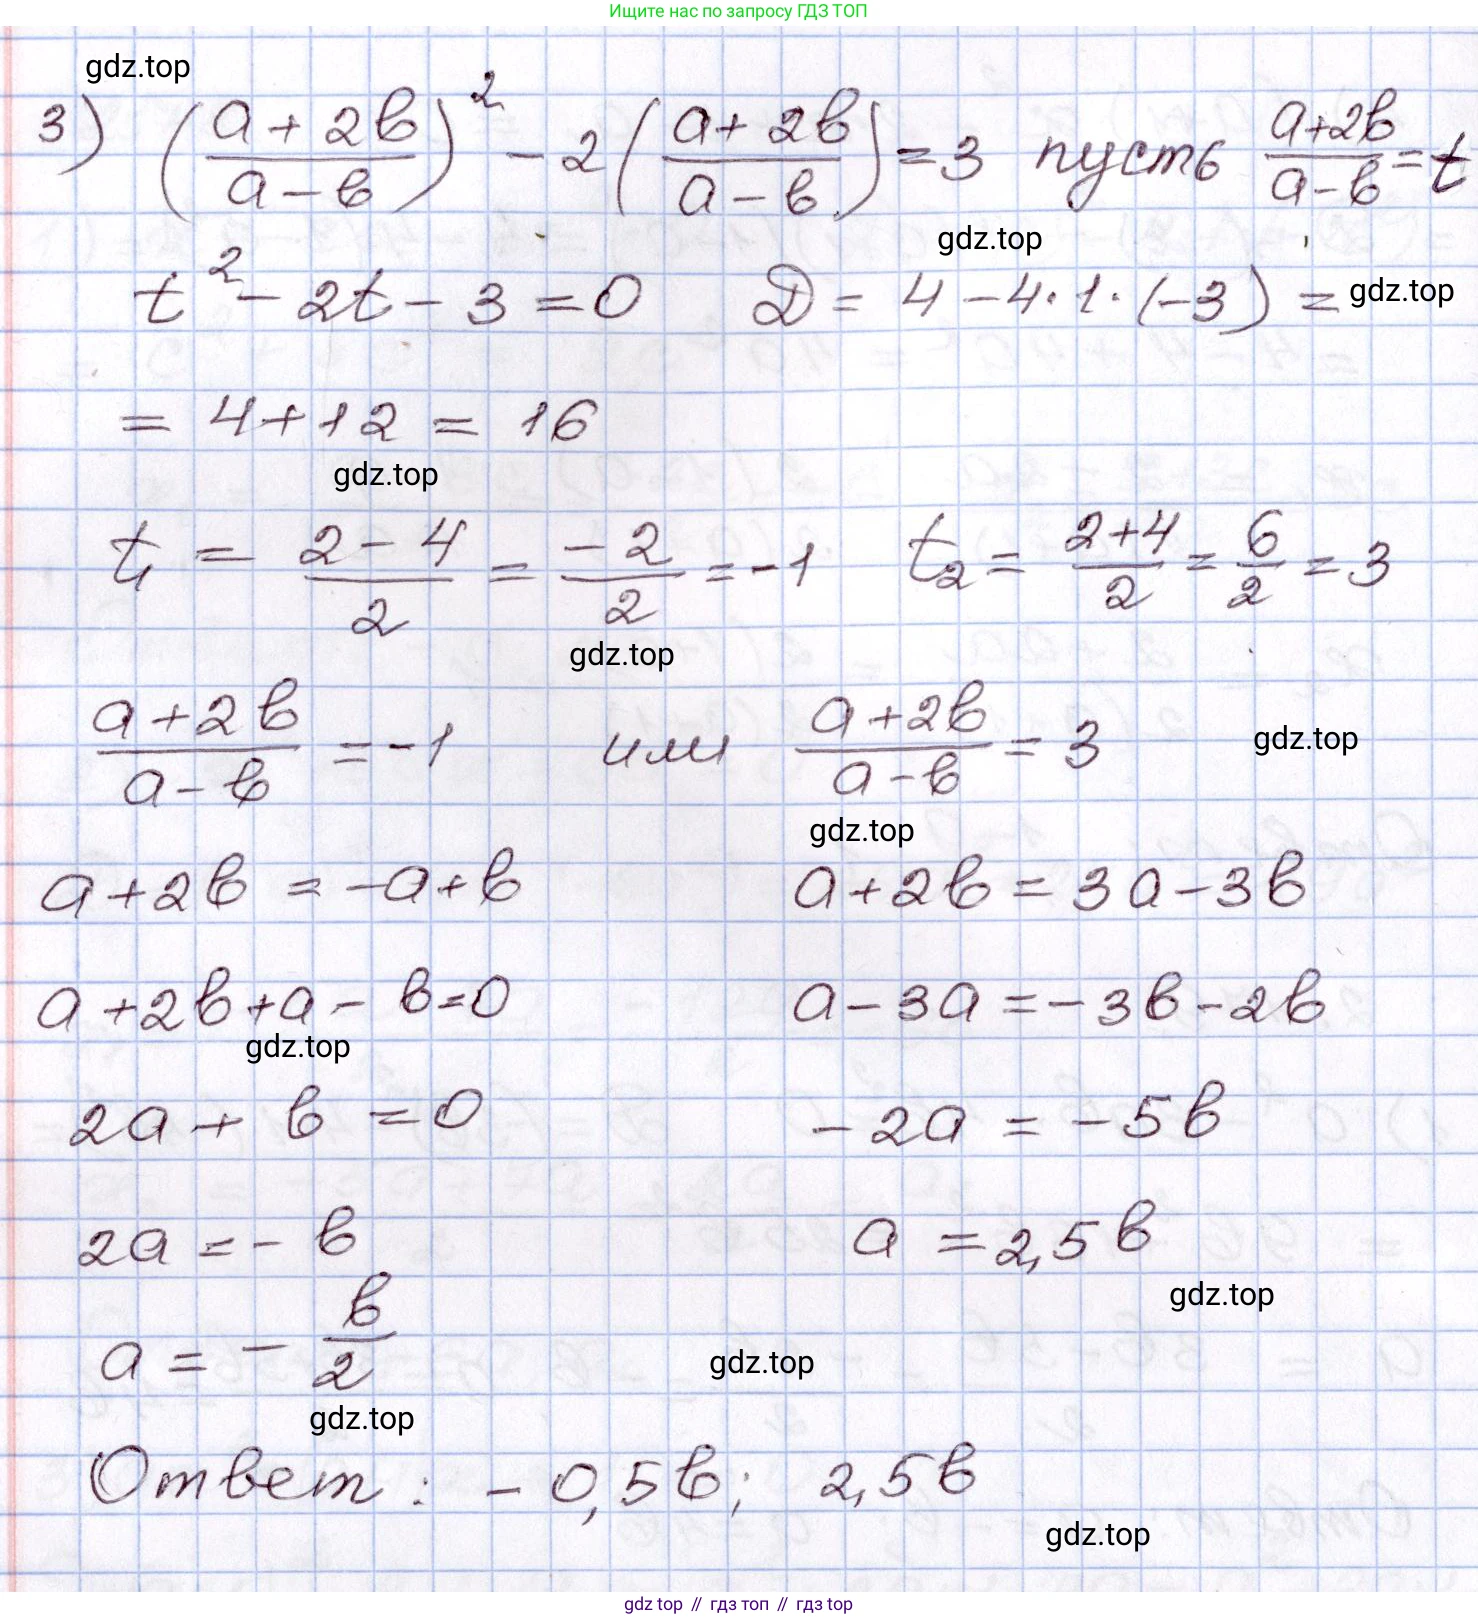 Ищите нас по запросу ГДЗ ТОП
gdz.top
3) ((a+2в)/(a-в))² - 2((a+2в)/(a-в)) = 3 пусть (a+2в)/(a-в) = t
gdz.top
t² - 2t - 3 = 0 D = 4 - 4·1·(-3) = gdz.top
= 4+12 = 16
gdz.top
t₁ = (2-4)/2 = -2/2 = -1 t₂ = (2+4)/2 = 6/2 = 3
gdz.top
(a+2в)/(a-в) = -1 или (a+2в)/(a-в) = 3 gdz.top
gdz.top
a+2в = -a+в a+2в = 3a-3в
a+2в+a-в=0 a-3a = -3в-2в
gdz.top
2a+в=0 -2a = -5в
2a=-в a = 2,5в
gdz.top
a = -в/2
gdz.top
gdz.top
Ответ: -0,5в; 2,5в
gdz.top
gdz top // гдз топ // гдз top